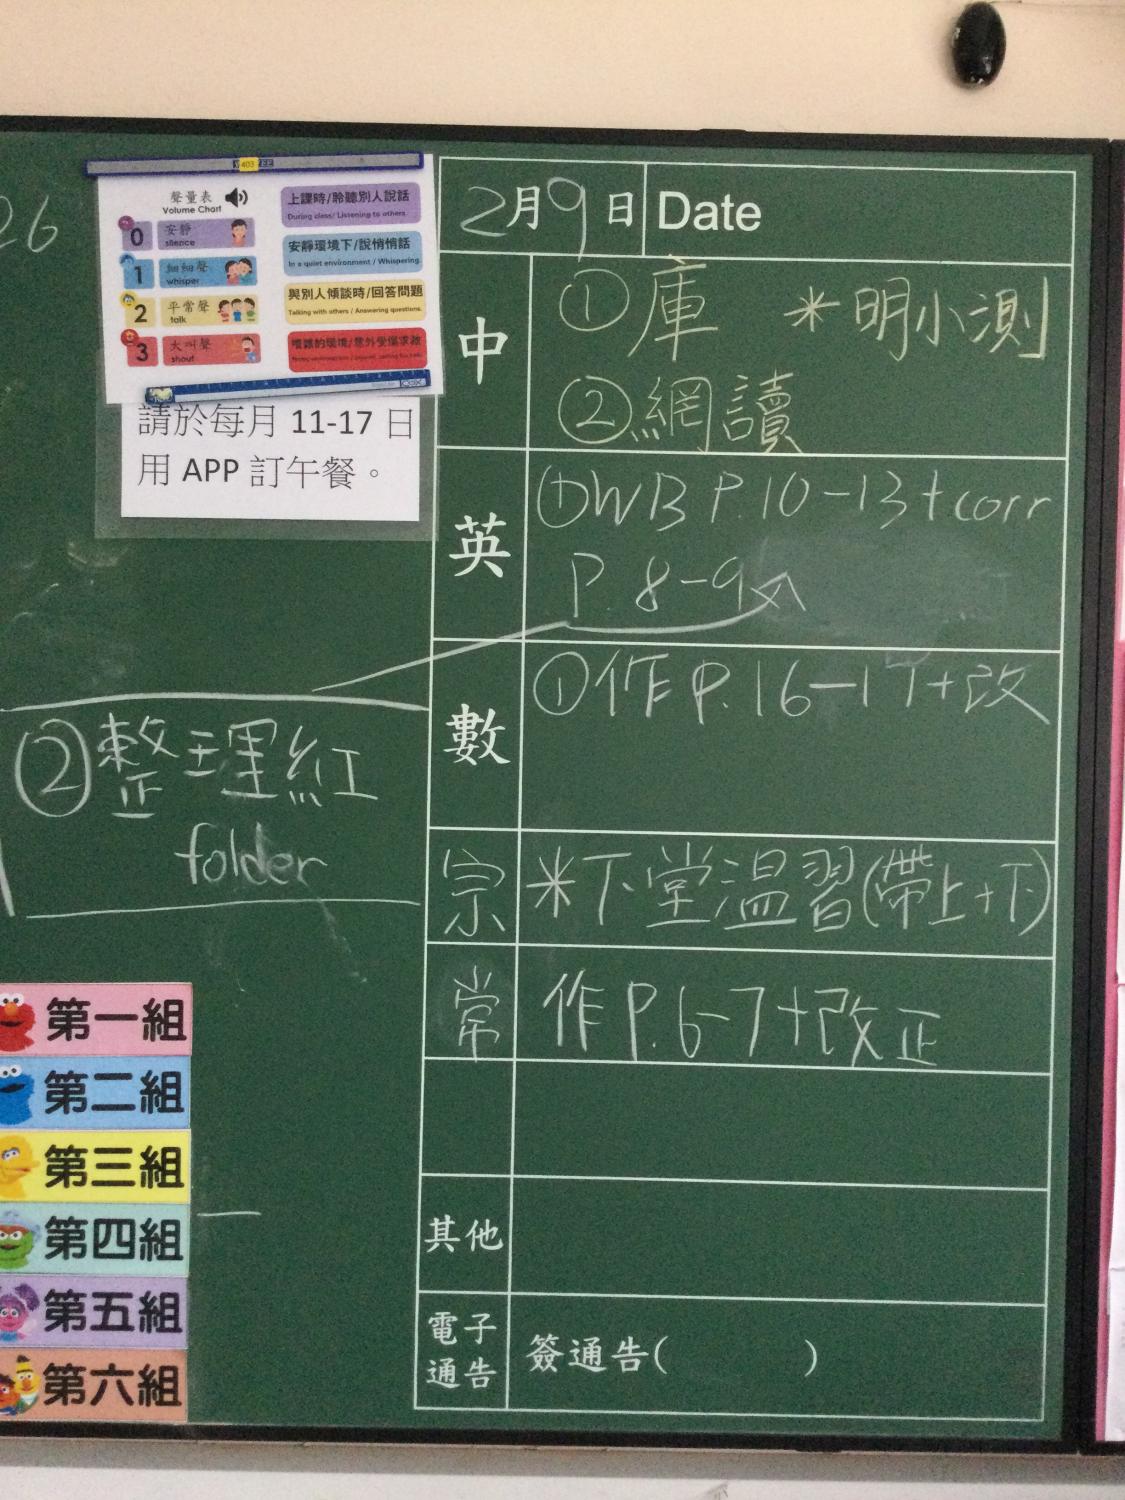 26
403
聲量表
Volume Chart
0 安靜 silence
上課時/聆聽別人說話
During class/ Listening to others
1 細細聲 whisper
安靜環境下/說悄悄話
In a quiet environment / Whispering
2 平常聲 talk
與別人傾談時/回答問題
Talking with others / Answering questions
3 大叫聲 shout
嘈雜的環境/意外受傷求救
請於每月 11-17 日
用 APP 訂午餐。
2月9日 Date
中
①庫 *明小測
②網讀
英
①WB P.10-13+corr
P. 8-9
②整理紅
folder
數
①作P.16-17+改
宗 *下堂温習(帶上+下)
常 作P.6-7+改正
其他
電子
通告
簽通告( )
第一組
第二組
第三組
第四組
第五組
第六組